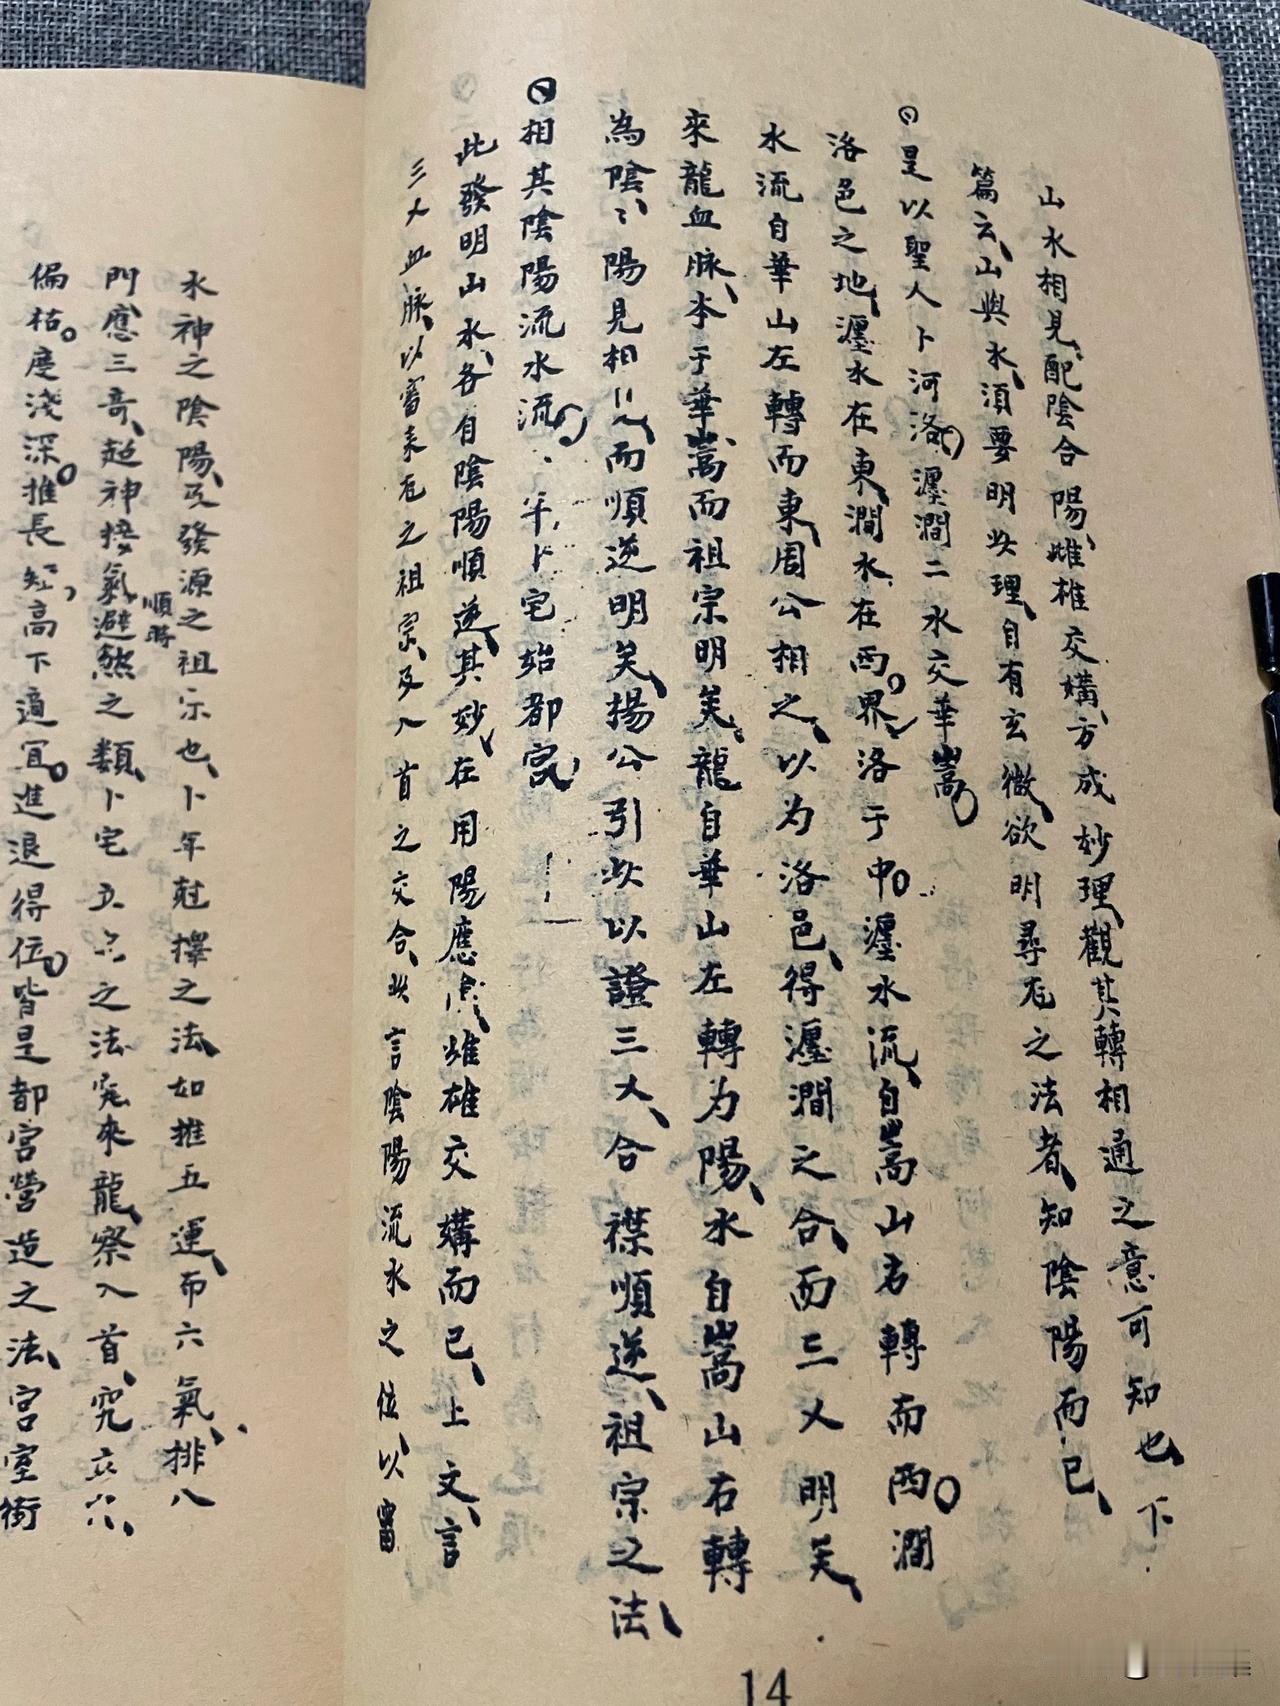 山水相見、配陰合陽、雌雄交媾、方成妙理、觀其轉相通之意可知也、下
篇云、山與水、須要明此理、自有玄微、欲明尋龙之法者、知陰陽而已、
是以聖人卜河洛、瀍澗二水交華嵩、
洛邑之地、瀍水在東、澗水在西。界洛于中。瀍水流自嵩山右轉而西。澗
水流自華山左轉而東、周公相之、以为洛邑、得瀍澗之合、而三乂明矣、
來龍血脉、本于華嵩、而祖宗明矣。龍自華山左轉为陽、水自嵩山右轉
為陰、〻陽見相見、而順逆明矣、揚公引此以證三乂、合襟順逆、祖宗之法、
相其陰陽流水流、卜年卜宅始都宮、
此發明山水、各自陰陽順逆、其妙、在用陽應陰、雌雄交媾而已、上文、言
三乂血脉、以審来龙之祖宗、及入首之交合、此言陰陽流水之位、以審
水神之陰陽、及發源之祖宗也、卜年尅擇之法、如推五運、布六氣、排八
門、應三奇、超神接氣、避煞順時之類、卜宅之法、宪來龍、察入首、究立穴、
偏枯。度淺深。推長短、高下適宜。進退得位。皆是都宮營造之法、宮室街
14